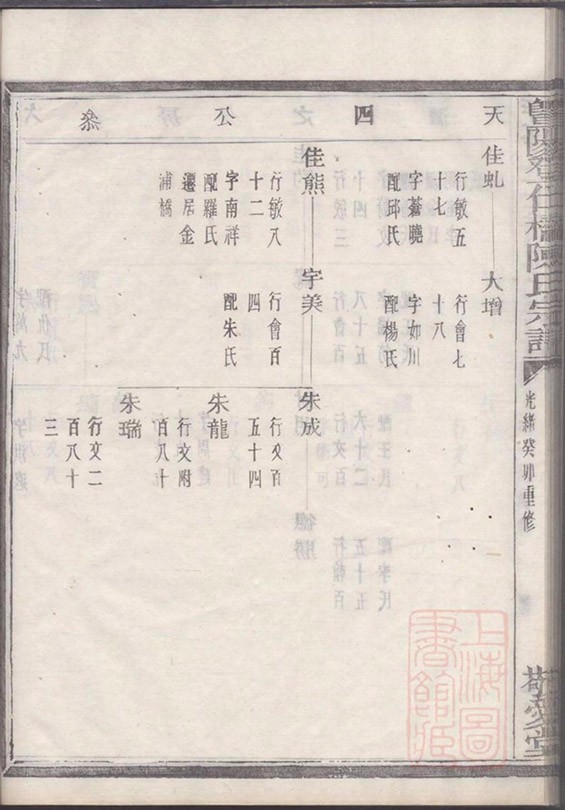 天 四 公 叅
佳虬
行敏五
十七
字蒼曉
配邱氏
大增
行會七
十八
字如川
配楊氏
佳熊
行敏八
十二
字南祥
配羅氏
遷居金
浦橋
宇美
行會百
四
配朱氏
朱成
行文百
五十四
朱龍
行文附
百八十
朱瑞
行文二
百八十
三
陳氏宗譜
光緒癸卯重修
敬愛堂
上海圖
書館藏